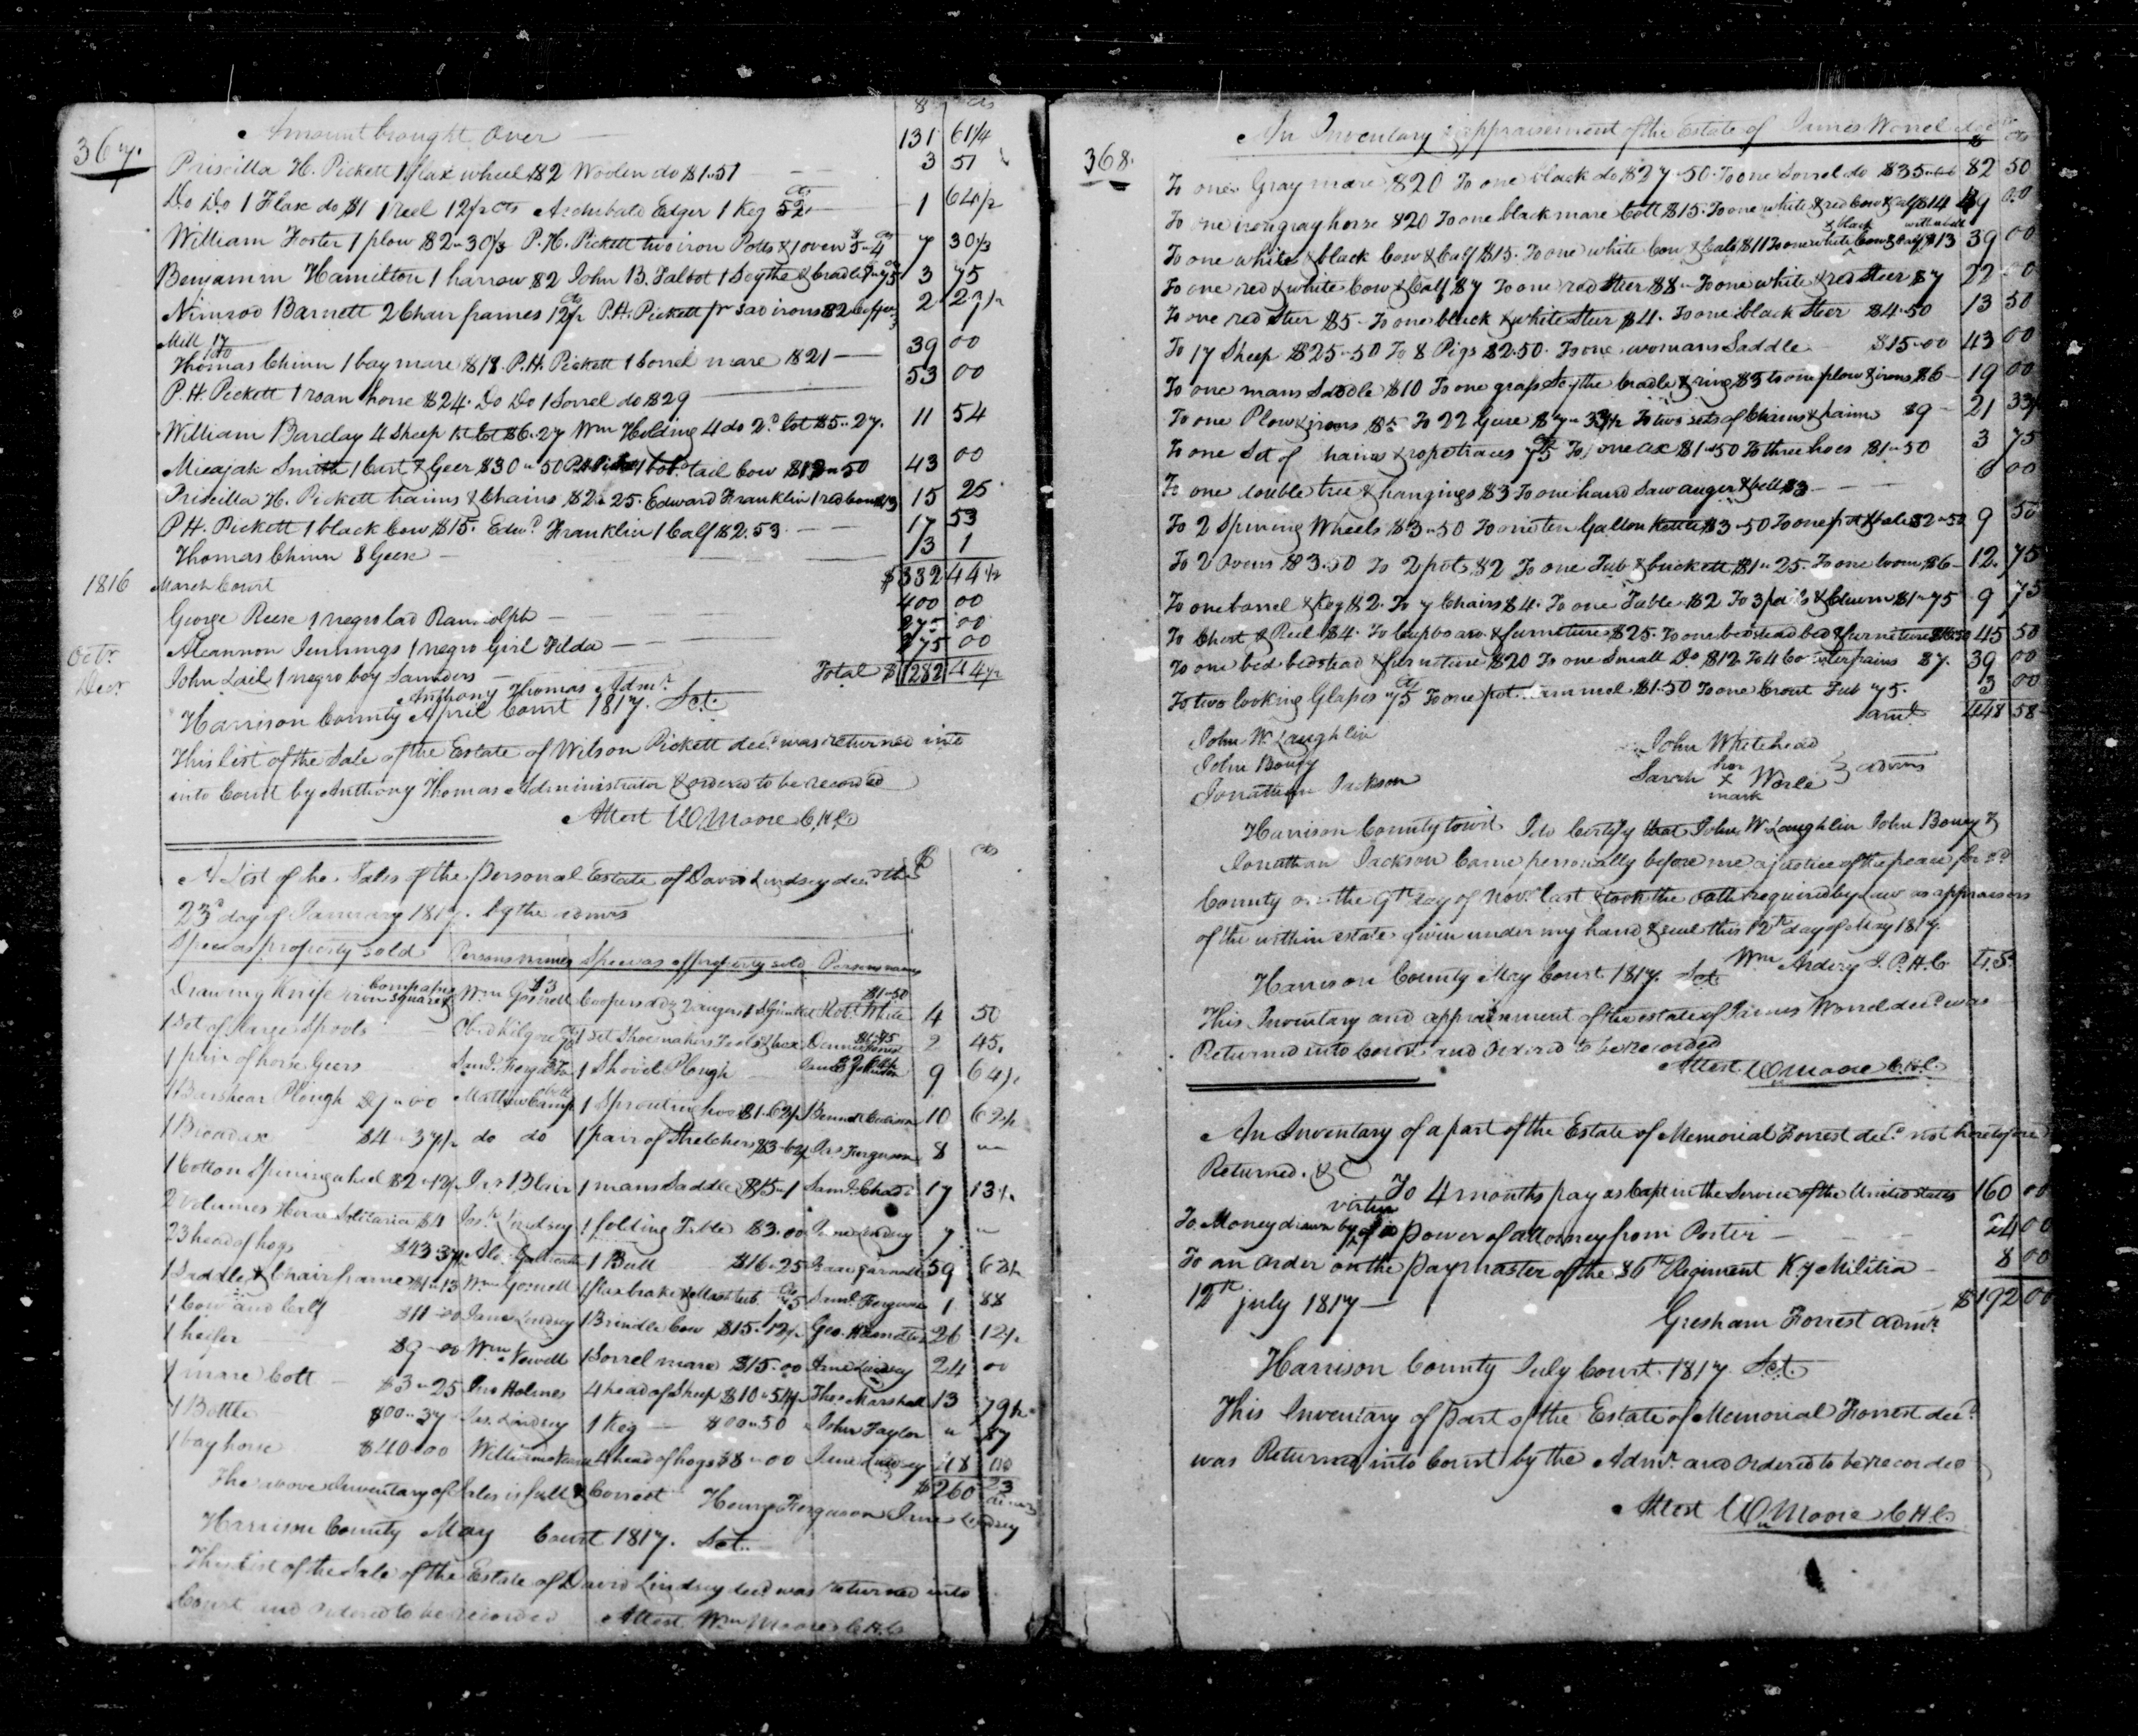 367.
$ cts
Amount brought Over 131 61 1/4
Priscilla H. Pickett 1 flax wheel $2 Woolen do $1.51 3 51
Do Do 1 Flax do $1 1 reel 12 1/2 cts Archibald Edger 1 Keg 52 cts 1 64 1/2
William Foster 1 plow $2-30 1/3 P. H. Pickett two iron Potts & 1 oven $5-4 cts 7 30 1/3
Benjamin Hamilton 1 harrow $2 John B. Talbot 1 Scythe & Cradle 1-75 3 75
Nimrod Barnett 2 Chair frames 12 1/2 cts P. H. Pickett pr sad irons $2 Coffee 2 29 1/2
Mill 17
Thomas Chinn 1 bay mare $18. P. H. Pickett 1 Sorrel mare $21 39 00
P. H. Pickett 1 roan horse $24. Do Do 1 Sorrel do $29 53 00
William Barclay 4 Sheep 1st Lot $6.27 Wm Holding 4 do 2d lot $5..27. 11 54
Micajah Smith 1 Cart & Geer $30"50 1 bob tail Cow 43 00
Priscilla H. Pickett haims & Chains $2"25. Edward Franklin 1 red Cow $13 15 25
P. H. Pickett 1 black Cow $15. Edwd Franklin 1 Calf $2.53. 17 53
Thomas Chinn 8 Geese 3 1
$332 44 1/2
1816 March Court
George Reese 1 negro lad Randolph 400 00
275 00
Octr. Alcannon Jennings 1 negro Girl Tilda 275 00
Decr John Lail 1 negro boy Saunders Total $ 1282 44 1/2
Anthony Thomas Admr.
Harrison County April Court 1817. Sct.
This list of the Sale of the Estate of Wilson Pickett decd. was returned into
into Court by Anthony Thomas Administrator & ordered to be recorded
Attest Wm Moore C.H.C.
A List of he Sales of the personal Estate of David Lindsey decd the $ cts
23d day of January 1817. by the admrs
Species property sold Persons names Species of property sold Persons names
Drawing Knife iron square & Compass Wm Gosnell $3 Coopers adz 2 augers Robt White $1-50 4 50
1 Set of large Spools Obed Kilgore 1 Set Shoemakers Tools & box 2 45.
1 pair of horse Geers Saml. Ferguson 1 Shovel Plough James Johnson 9 64 1/2
1 Barshear Plough $9"00 Matthew Camp 1 Sprouting hoe $1-62 1/2 10 62 1/2
1 Broadax $4"37 1/2 do do 1 pair of Stretchers $3-62 1/2 Jno Ferguson 8 "
1 Cotton Spining wheel $2"12 1/2 Jas Blair 1 mans Saddle $15"1 Saml. 17 13 1/2
2 volumes $4 Jos. Lindsey 1 folding Table $3.00 Lindsey 7 "
23 head of hogs $43 37 1/2 1 Bull $16"25 Isaac 59 62 1/2
1 Saddle & Chair frame $1"13 Wm Gosnell 1 flax brake & Mash tub 75 cts Saml. Ferguson 1 88
1 Cow and Calf $11"00 Jane Lindsey 1 Brindle Cow $15.12 1/2 Geo. Hamilton 26 12 1/2
1 heifer $9"00 Wm Newell 1 Sorrel mare $15.00 Lindsey 24 00
1 mare Colt $3"25 Jno Holmes 4 head of Sheep $10"54 1/2 Thos Marshall 13 79 1/2
1 Bottle $00..37 Jas. Lindsey 1 Keg $00"50 John Taylor " 87
1 bay horse $40.00 William 4 head of hogs $8"00 Lindsey 48 00
$260 23
The above Inventory of Sales is full & Correct Henry Ferguson Lindsey admrs
Harrison County May Court 1817. Sct.
This list of the Sale of the Estate of David Lindsey decd was returned into
Court and ordered to be recorded Attest Wm Moore C.H.C.
368.
An Inventory & appraisement of the Estate of James Worrel decd $ cts
To one Gray mare $20 To one black do $27"50. To one Sorrel do $35"00 82 50
To one iron gray horse $20 To one black mare Colt $15. To one white & red Cow & Calf $14 49 00
& black with a bell
To one white & black Cow & Calf $15. To one white Cow & Calf $11 To one white Cow & Calf $13 39 00
To one red & white Cow & Calf $7 To one red Steer $8" To one white & red Steer $7 22 00
To one red Steer $5. To one black & white Steer $4. To one black Steer $4.50 13 50
To 17 Sheep $25"50 To 8 Pigs $2.50. To one womans Saddle $15"00 43 00
To one mans Saddle $10 To one grass Scythe Cradle & ring $3 to one plow & irons $6 19 00
To one Plow & irons $5 To 22 Geese $7"33 1/2 To two sets of Chains & haims $9 21 33 1/2
To one Set of haims & rope traces 75 cts To one ax $1"50 To three hoes $1"50 3 75
To one double tree & hangings $3 To one hand saw auger & bell $3 6 00
To 2 Spining Wheels $3"50 To one ten Gallon Kettle $3"50 To one pot & bale $2"50 9 50
To 2 Ovens $3.50 To 2 pots $2 To one Tub & buckett $1"25. To one loom $6 12. 75
To one barrel & Keg $2. To 7 Chairs $4. To one Table $2 To 3 pails & Churn $1"75 9 75
To Chest & Reel $4. To Cupboard & furniture $25. To one bedstead bed & furniture $16.50 45 50
To one bed bedstead & furniture $20 To one Small Do $12. To 4 $7. 39 00
To two looking Glasses 75 cts To one pot $1.50 To one Crout Tub 75. 3 00
Samt. 448 58
John W. Laughlin
John Boney
Jonathan Jackson
John Whitehead
Sarah her X mark Worle } admrs
Harrison County towit I do Certify that John W. Laughlin John Boney &
Jonathan Jackson Came personally before me a justice of the peace for sd
County on the 9th day of Novr last & took the oath required by law as appraisors
of the within estate given under my hand & seal this 12th day of May 1817.
Wm Ardery J.P.H.C. L.S.
Harrison County May Court 1817. Sct
This Inventory and appraisment of the estate of James Worrel decd was
Returned into Court and Ordered to be recorded
Attest Wm Moore C.H.C.
An Inventory of a part of the Estate of Memorial Forrest decd. not heretofore
Returned. &C
To 4 months pay as Capt in the Service of the United States 160 00
virtue
To Money drawn by of a power of attorney from Porter 24 00
To an order on the paymaster of the 86th Regiment Ky Militia 8 00
12th july 1817 $192 00
Gresham Forrest admr.
Harrison County July Court. 1817. Sct.
This Inventory of part of the Estate of Memorial Forrest decd.
was Returned into Court by the Admr. and ordered to be recorded
Attest Wm Moore C.H.C.